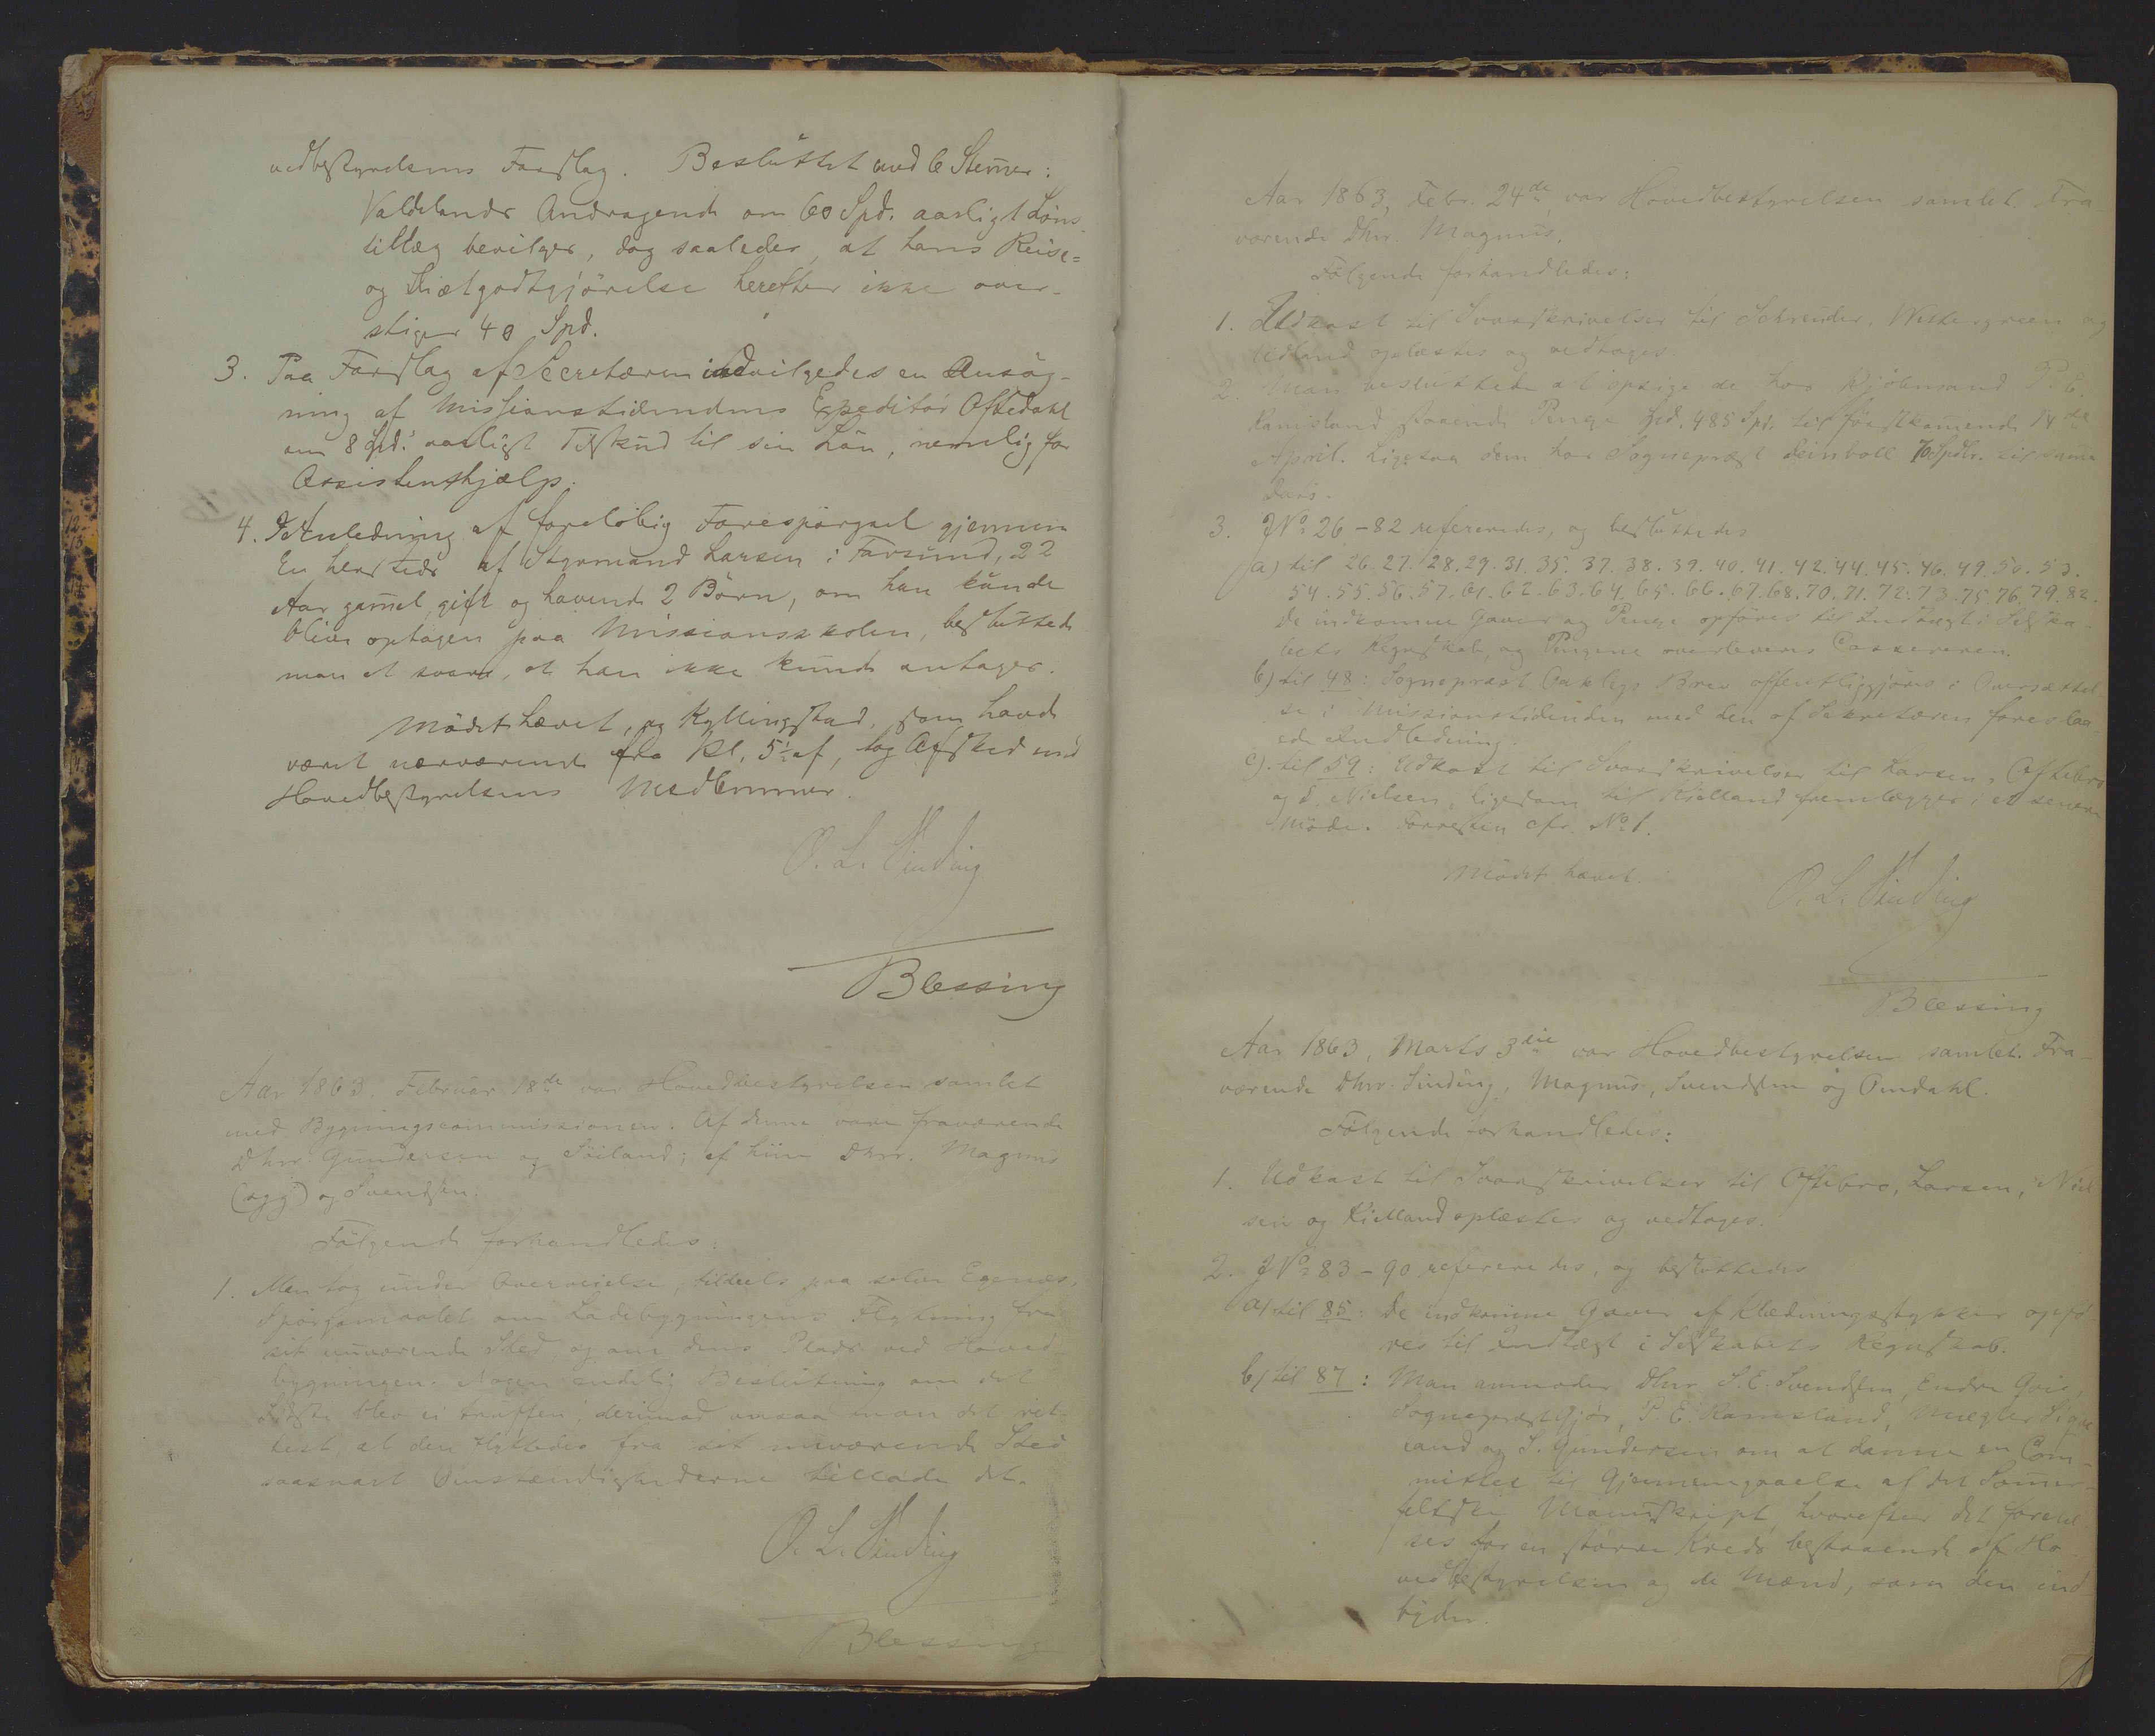 vedbestyrelsens Forslag. Besluttet med 6 Stemer:
Valdelands Andragende om 60 Spd. aarligt Løns-
tillæg bevilges, dog saaledes, at hans Reise-
og Diætgodtgjörelse herefter ikke over-
stiger 40 Spd.
3. Paa Forslag af Secretæren indvilgedes en Ansög-
ning af Missionstidendens Expeditör Oftedahl
om 8 Spd. aarligt Tilskud til sin Lön, nemlig for
Assistentshjælp.
4. I Anledning af foreløbig Forespörgsel gjennem
En hersteds af Styrmand Larsen i Farsund, 22
Aar gamel, gift og havende 2 Börn, om han kunde
blive optagen paa Missionsskolen, besluttede
man at svare, at han ikke kunde antages.
Mödet hævet, og Kyllingstad, som havde
været nærværende fra Kl. 5½ af, tog Afsked med
Hovedbestyrelsens Medlemmer.
O. L. Sinding
Blessing
Aar 1863. Februar 18de var Hovedbestyrelsen samlet
med Bygningscommissionen. Af denne vare fraværende
Dhrr Gundersen og Söiland; af hiin Dhrr. Magnus
(syg) og Svendsen.
Fölgende forhandledes:
1. Man tog under Overveielse, tildeels paa selve Egenæs,
Spörgsmaalet om Ladebygningens Flytning fra
sit nuværende Sted, og om dens Plads ved Hoved-
bygningen. Nogen endelig Beslutning om det
Sidste blev ei truffen; derimod ansaa man det ret-
test, at den flyttedes fra sit nuværende Sted
saasnart Omstændighederne tillade det.
O. L. Sinding
Blessing
Aar 1863, Febr. 24de, var Hovedbestyrelsen samlet. Fra-
værende Dhr. Magnus.
Fölgende forhandledes:
1. Udkast til Svarskrivelser til Schreuder, Wettergreen og
Udland oplæstes og vedtoges
2. Man besluttede at opsige de hos Kjöbmand P. E.
Ramsland staaende Penge Spd. 485 Spd. til förstkomende 14de
April. Ligesaa dem hos Sognepræst 70 Spdlr. til same
Dato.
3. J№ 26-82 refereredes, og besluttedes
a) til 26. 27. 28. 29. 31. 35. 37. 38. 39. 40. 41. 42. 44. 45. 46. 49. 50. 53.
54. 55. 56. 57. 61. 62. 63. 64. 65. 66. 67. 68. 70. 71. 72. 73. 75. 76. 79. 82.
De indkomne Gaver og Penge opföres til Indtægt i Selska-
bets Regnskab, og Pengene overleveres Cassereren.
b) til 48: Sognepræst Oaxlegs Brev offentliggjöres i Oversættel-
se i Missionstidenden med den af Sekretæren foreslaa-
ede Indledning.
c) til 59: Udkast til Svarskrivelser til Larsen, Oftebro
og S. Nielsen, ligesom til Kielland fremlægges i et senere
Möde. Forresten cfr. № 1.
Mödet hævet.
O. L. Sinding
Blessing
Aar 1863, Marts 3die var Hovedbestyrelsen samlet. Fra-
værende Dhrr. Sinding, Magnus, Svendsen og Omdahl.
Fölgende forhandledes:
1. Udkast til Svarskrivelser til Oftebro, Larsen, Niel-
sen og Kielland oplæstes og vedtoges.
2. J№ 83-90 refereredes, og besluttedes
a) til 85: De indkomne Gaver af Klædningsstykker opfö-
res til Indtægt i Selskabets Regnskab.
b) til 87: Man anmoder Dhrr S. E. Svendsen, Endre
Sognepræst Gjör, P. E. Ramsland, Mægler
land og S. Gundersen om at danne en Com-
mittee til Gjennemgaaelse af det Somer-
feltske Manuskript, hvorefter det forelæ-
ses for en större Kreds bestaaende af Ho-
vedbestyrelsen og de Mænd, som den ind-
byder.